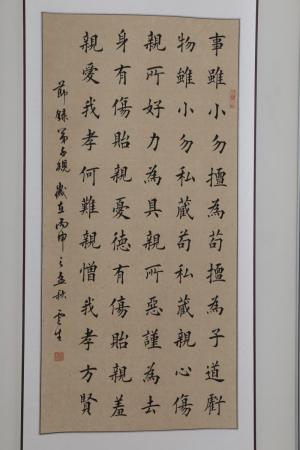 事雖小勿擅為苟擅為子道虧
物雖小勿私藏苟私藏親心傷
親所好力為具親所惡謹為去
身有傷貽親憂德有傷貽親羞
親愛我孝何難親憎我孝方賢
節錄弟子規歲在丙申之孟秋雲生